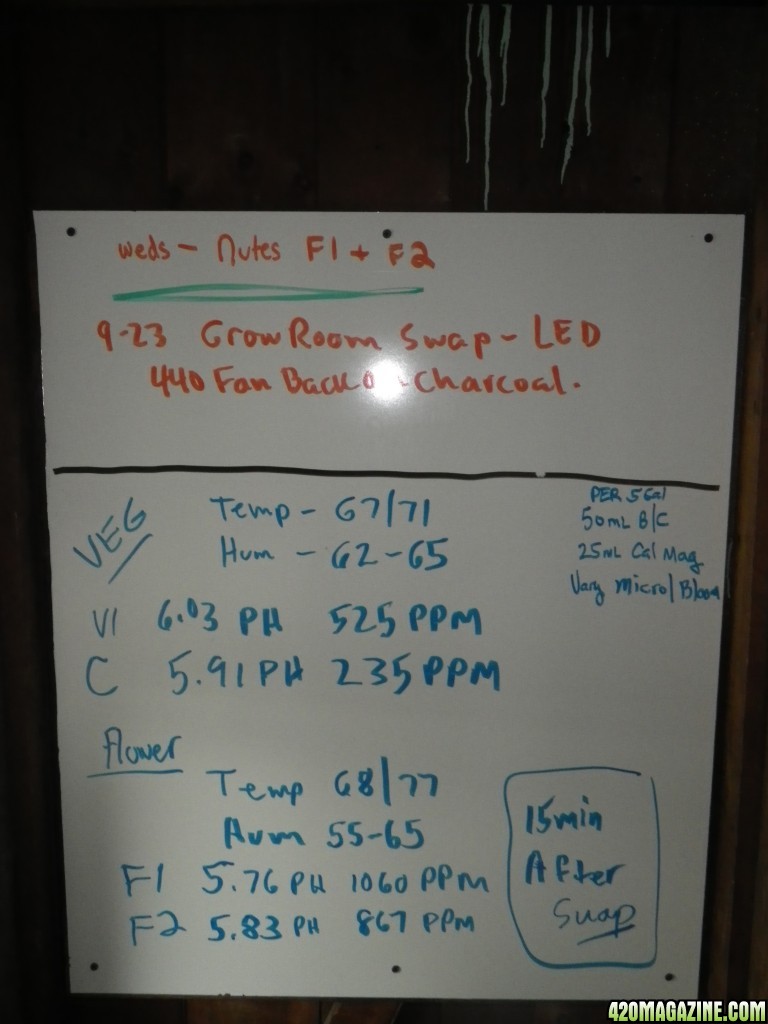 weds - Nutes F1 + F2
9-23 Grow Room Swap - LED
440 Fan Back - Charcoal.
PER 5 Gal
50mL B/C
25mL Cal Mag
Vary Micro/Bloom
VEG
Temp - 67/71
Hum - 62-65
V1 6.03 PH 525 PPM
C 5.91 PH 235 PPM
Flower
Temp 68/77
Hum 55-65
F1 5.76 PH 1060 PPM
F2 5.83 PH 867 PPM
15min
After
Swap
420MAGAZINE.COM